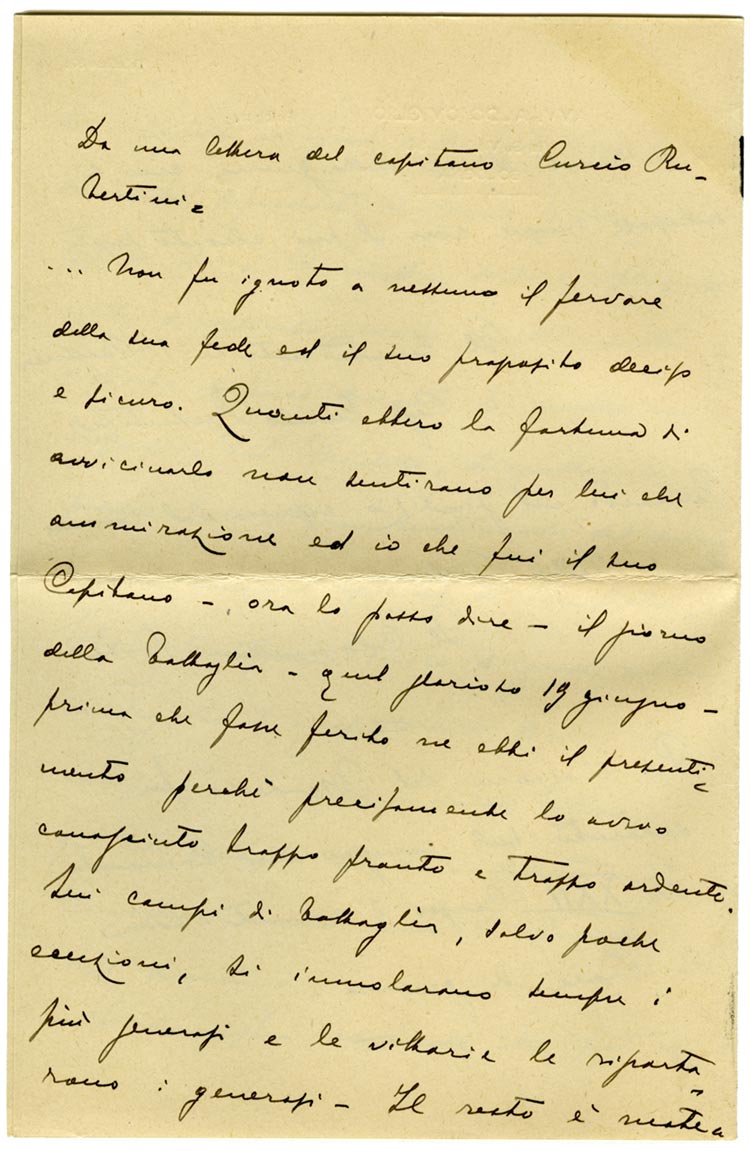 Da una lettera del capitano Curcio Ru-
bertini=
... Non fu ignoto a nessuno il fervore
della sua fede ed il suo proposito deciso
e sicuro. Quanti ebbero la fortuna di
avvicinarlo non sentirono per lui che
ammirazione ed io che fui il suo
Capitano - ora lo posso dire - il giorno
della battaglia - quel glorioso 19 giugno -
prima che fosse ferito ne ebbi il presenti=
mento perchè precisamente lo avevo
conosciuto troppo pronto e troppo ardente.
Sui campi di battaglia, salvo poche
eccezioni, si immolarono sempre i
più generosi e le vittorie le riporta=
rono i generosi - Il resto è mate